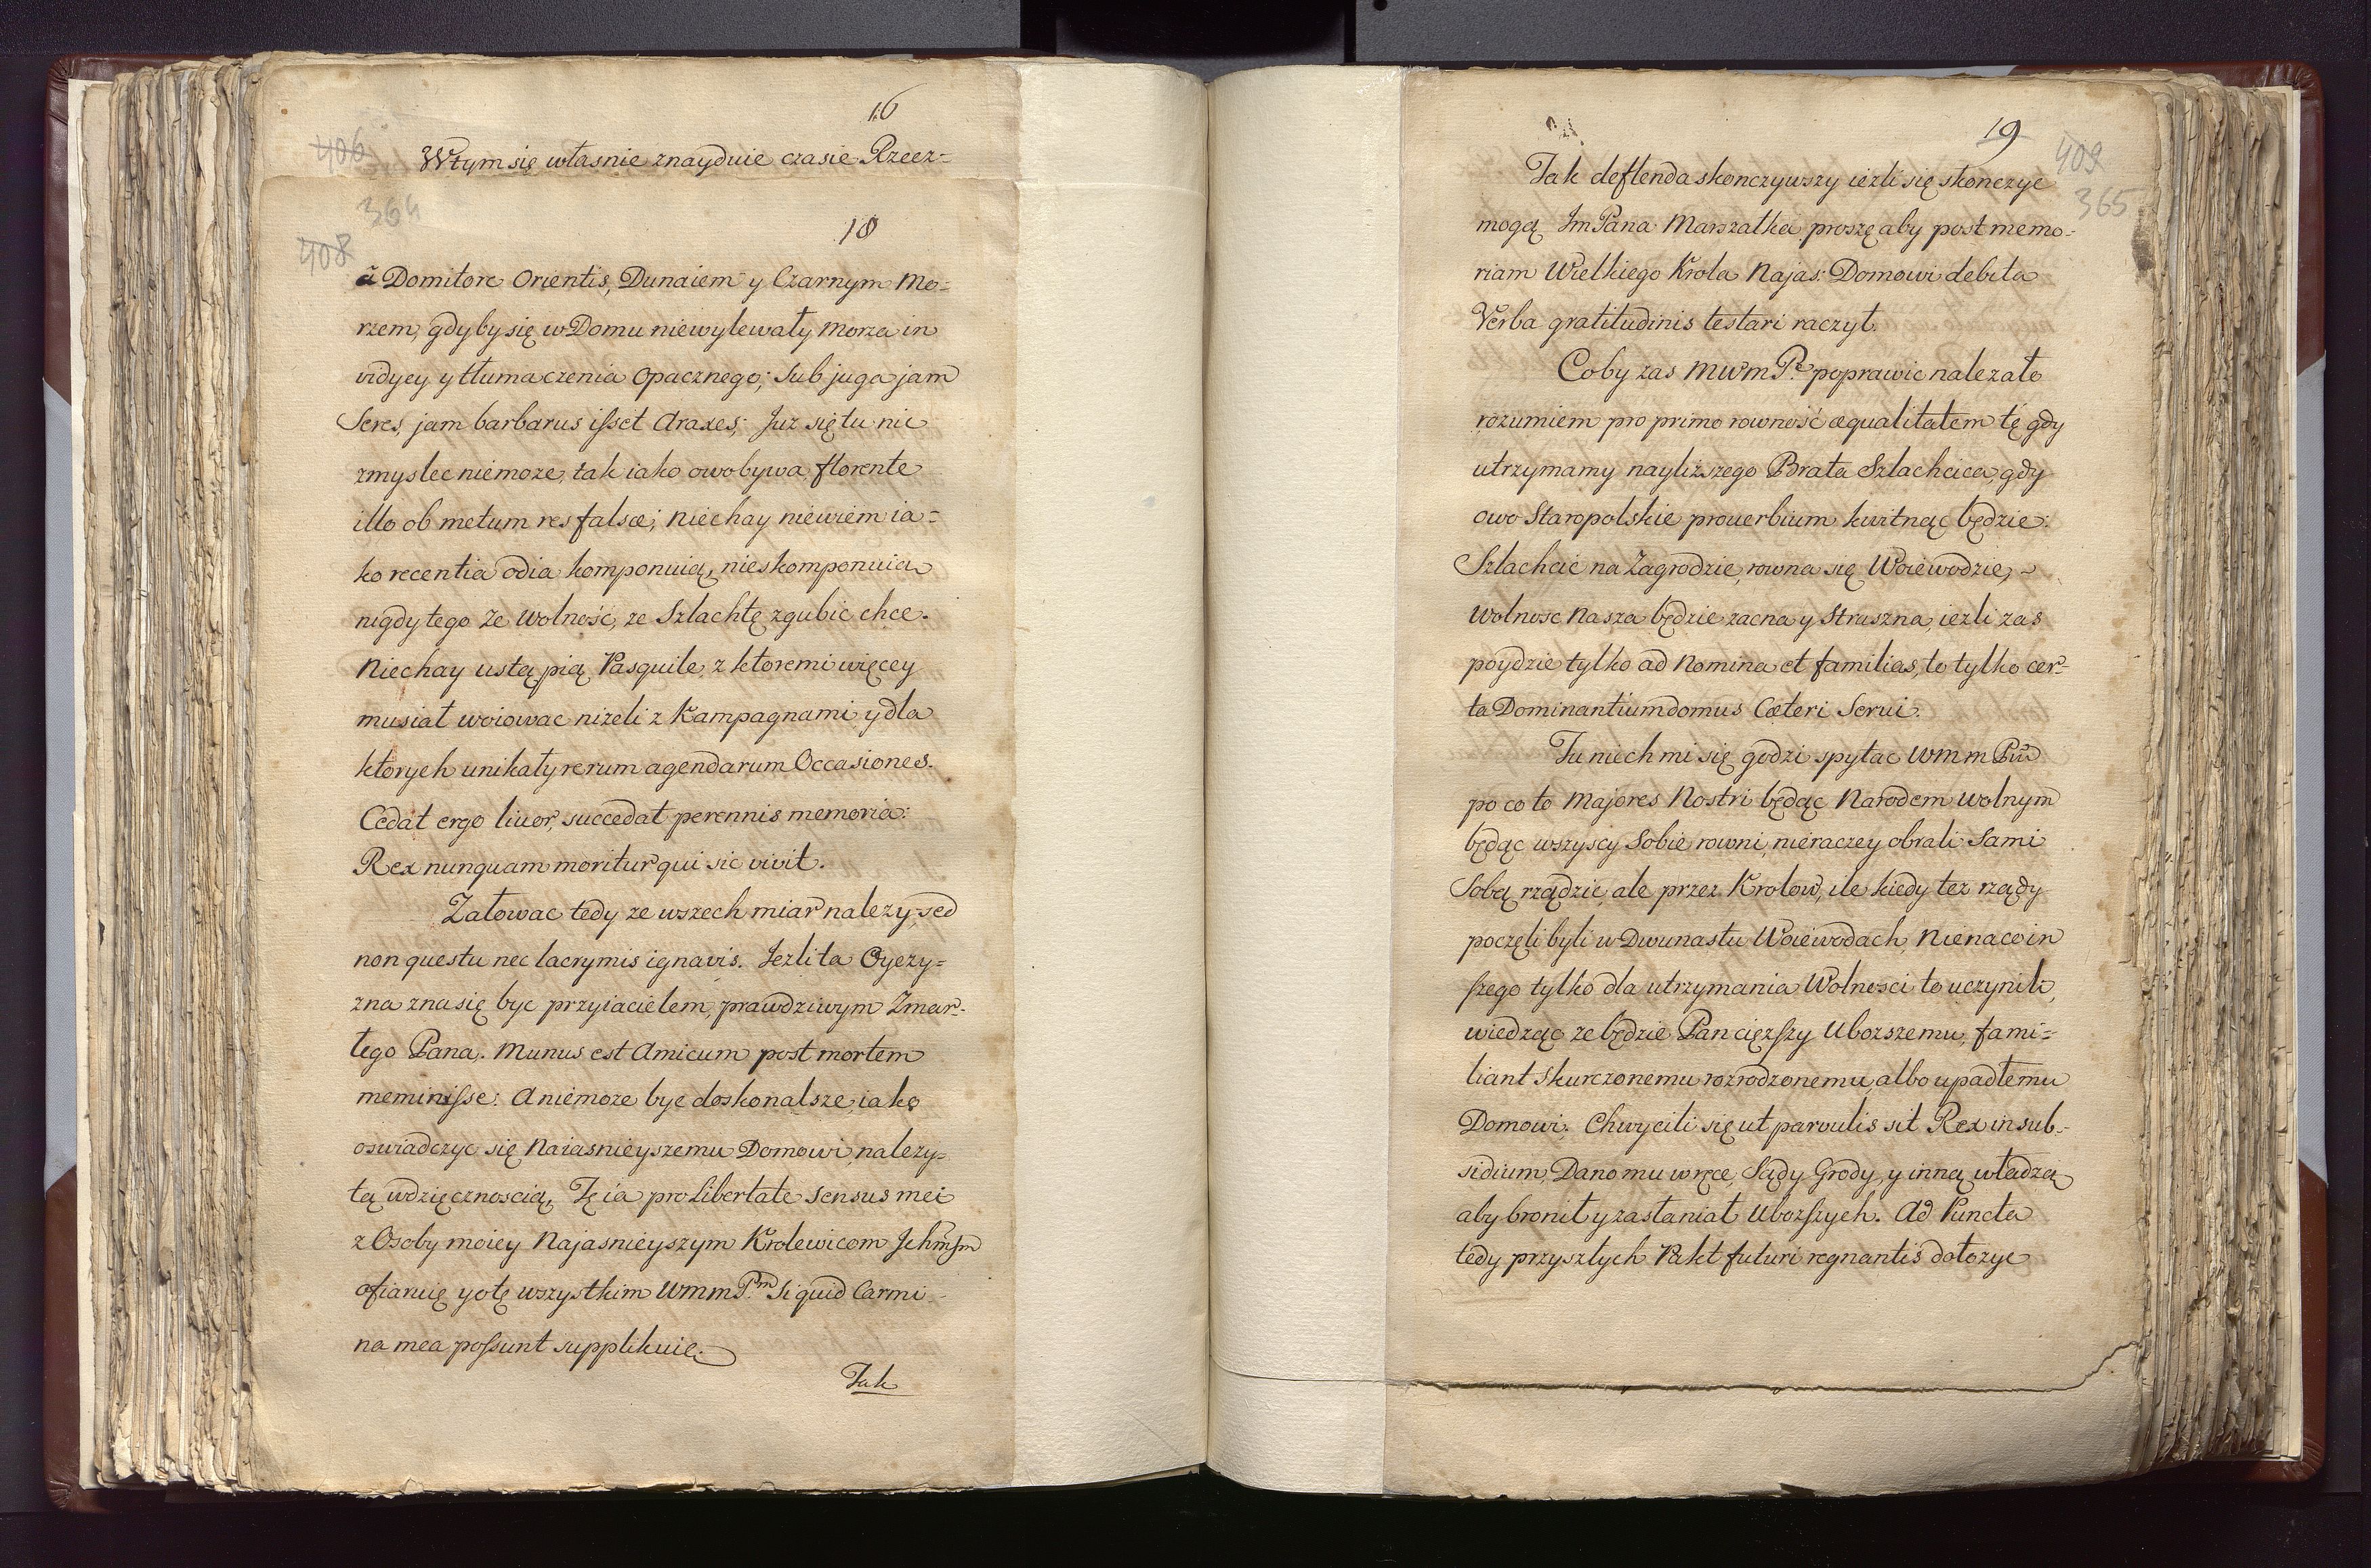 16
406
Wtym się własnie znayduie czasie Rzecz-
364
18
408
à Domitore Orientis, Dunaiem y Czarnym Mo-
rzem, gdyby się w Domu niewylewały morza in
vidyey y tłumaczenia opacznego; Sub juga jam
Seres, jam barbarus isset Araxes; Juz się tu nic
zmyslec niemoze, tak iako owo bywa, florente
illo ob metum res falsæ; niechay niewiem ia-
ko recentia odia komponuią, nieskomponuią
nigdy tego ze wolność, ze Szlachtę zgubic chce.
Niechay ustą pią Pasquile, z ktoremi więcey
musiał woiowac nizeli z Kampagnami y dla
ktorych unikały rerum agendarum Occasiones.
Cedat ergo livor, succedat perennis memoria:
Rex nunquam moritur qui sic vivit.
Załowac tedy ze wszech miar nalezy, sed
non questu nec lacrymis ignavis. Jezli ta Oyczy-
zna zna się byc przyiacielem, prawdziwym Zmar-
łego Pana. Munus est Amicum post mortem
meminisse: A niemoze byc doskonalsze, iako
oswiadczyc się Naiasnieyszemu Domowi, nalezy-
tą wdzięcznoscią, Tę ia pro Libertate Sensus mei
z Osoby moiey Najasnieyszym Krolewicom Jchmsm
ofiaruię y otę wszystkim WmmPm Si quid Carmi-
na mea possunt supplikuie.
Tak
19
409
365
Tak deflenda skonczywszy iezli się skonczyc
mogą Jm Pana Marszałka proszę aby post memo-
riam Wielkiego Krola Najas: Domowi debita
Verba gratitudinis testari raczył.
Coby zas MWmP. poprawic nalezało
rozumiem pro primo rowność æqualitatem tę gdy
utrzymamy nayliższego Brata Szlachcica, gdy
owo Staropolskie proverbium kwitnąc będzie:
Szlachcic na Zagrodzie, rowna się Woiewodzie,
Wolnosc Nasza będzie zacna y Straszna, iezli zas
poydzie tylko ad Nomina et familias, to tylko cer-
ta Dominantium domus Cæteri Servi.
Tu niech mi się godzi spytac Wmm
po co to Majores Nostri będąc Narodem wolnym
będąc wszyscy Sobie rowni, nieraczey obrali Sami
Sobą rządzic, ale przez Krolow, ile kiedy tez rządy
poczęli byli w Dwunastu Woiewodach, Nienacoin
szego tylko dla utrzymania Wolnosci to uczynili,
wiedząc ze będzie Pan cięzszy Uboższemu, fami-
liant skurczonemu rozrodzonemu, albo upadłemu
Domowi. Chwycili się ut parvulis sit Rex in sub-
sidium, Dano mu w ręce, Sądy Grody, y inną władzą
aby bronił y zasłaniał Uboższych. Ad Puncta
tedy przyszłych Pakt futuri regnantis dołozyc